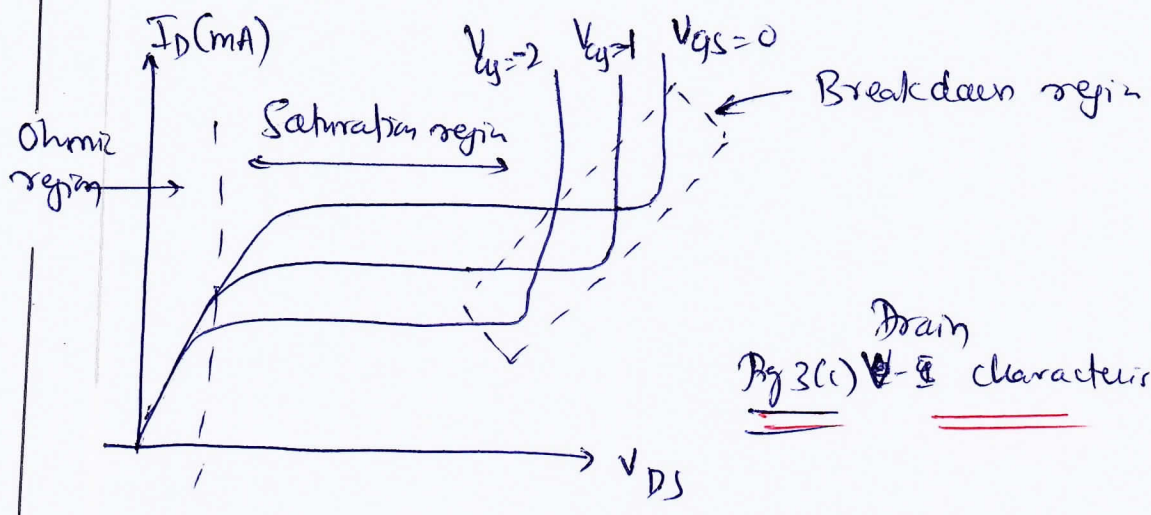 I_D(mA)
V_GS=-2 V_GS=-1 V_GS=0
Breakdown region
Ohmic
region
Saturation region
Drain
Fig 3(i) V-I characteris
V_DS